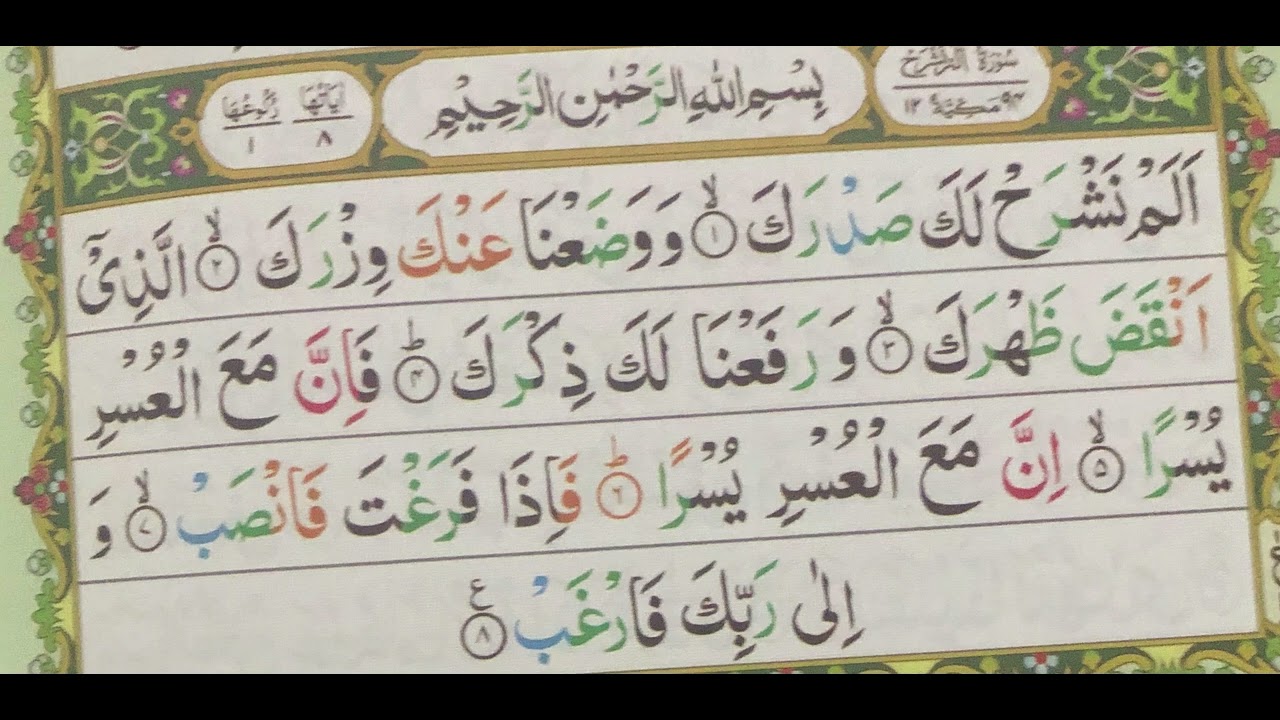 سُوْرَةُ اَلَمْ نَشْرَحْ
٩٤ مَكِّيَّةٌ ١٢
بِسْمِ اللّٰهِ الرَّحْمٰنِ الرَّحِيْمِ
اٰيَاتُهَا ٨
رُكُوْعُهَا ١
اَلَمْ نَشْرَحْ لَكَ صَدْرَكَ ۙ﴿١﴾ وَ وَضَعْنَا عَنْكَ وِزْرَكَ ۙ﴿٢﴾ الَّذِىْۤ
اَنْقَضَ ظَهْرَكَ ۙ﴿٣﴾ وَ رَفَعْنَا لَكَ ذِكْرَكَ ؕ﴿٤﴾ فَاِنَّ مَعَ الْعُسْرِ
يُسْرًا ۙ﴿٥﴾ اِنَّ مَعَ الْعُسْرِ يُسْرًا ؕ﴿٦﴾ فَاِذَا فَرَغْتَ فَانْصَبْ ۙ﴿٧﴾ وَ
اِلٰى رَبِّكَ فَارْغَبْ ﴿٨﴾ ع